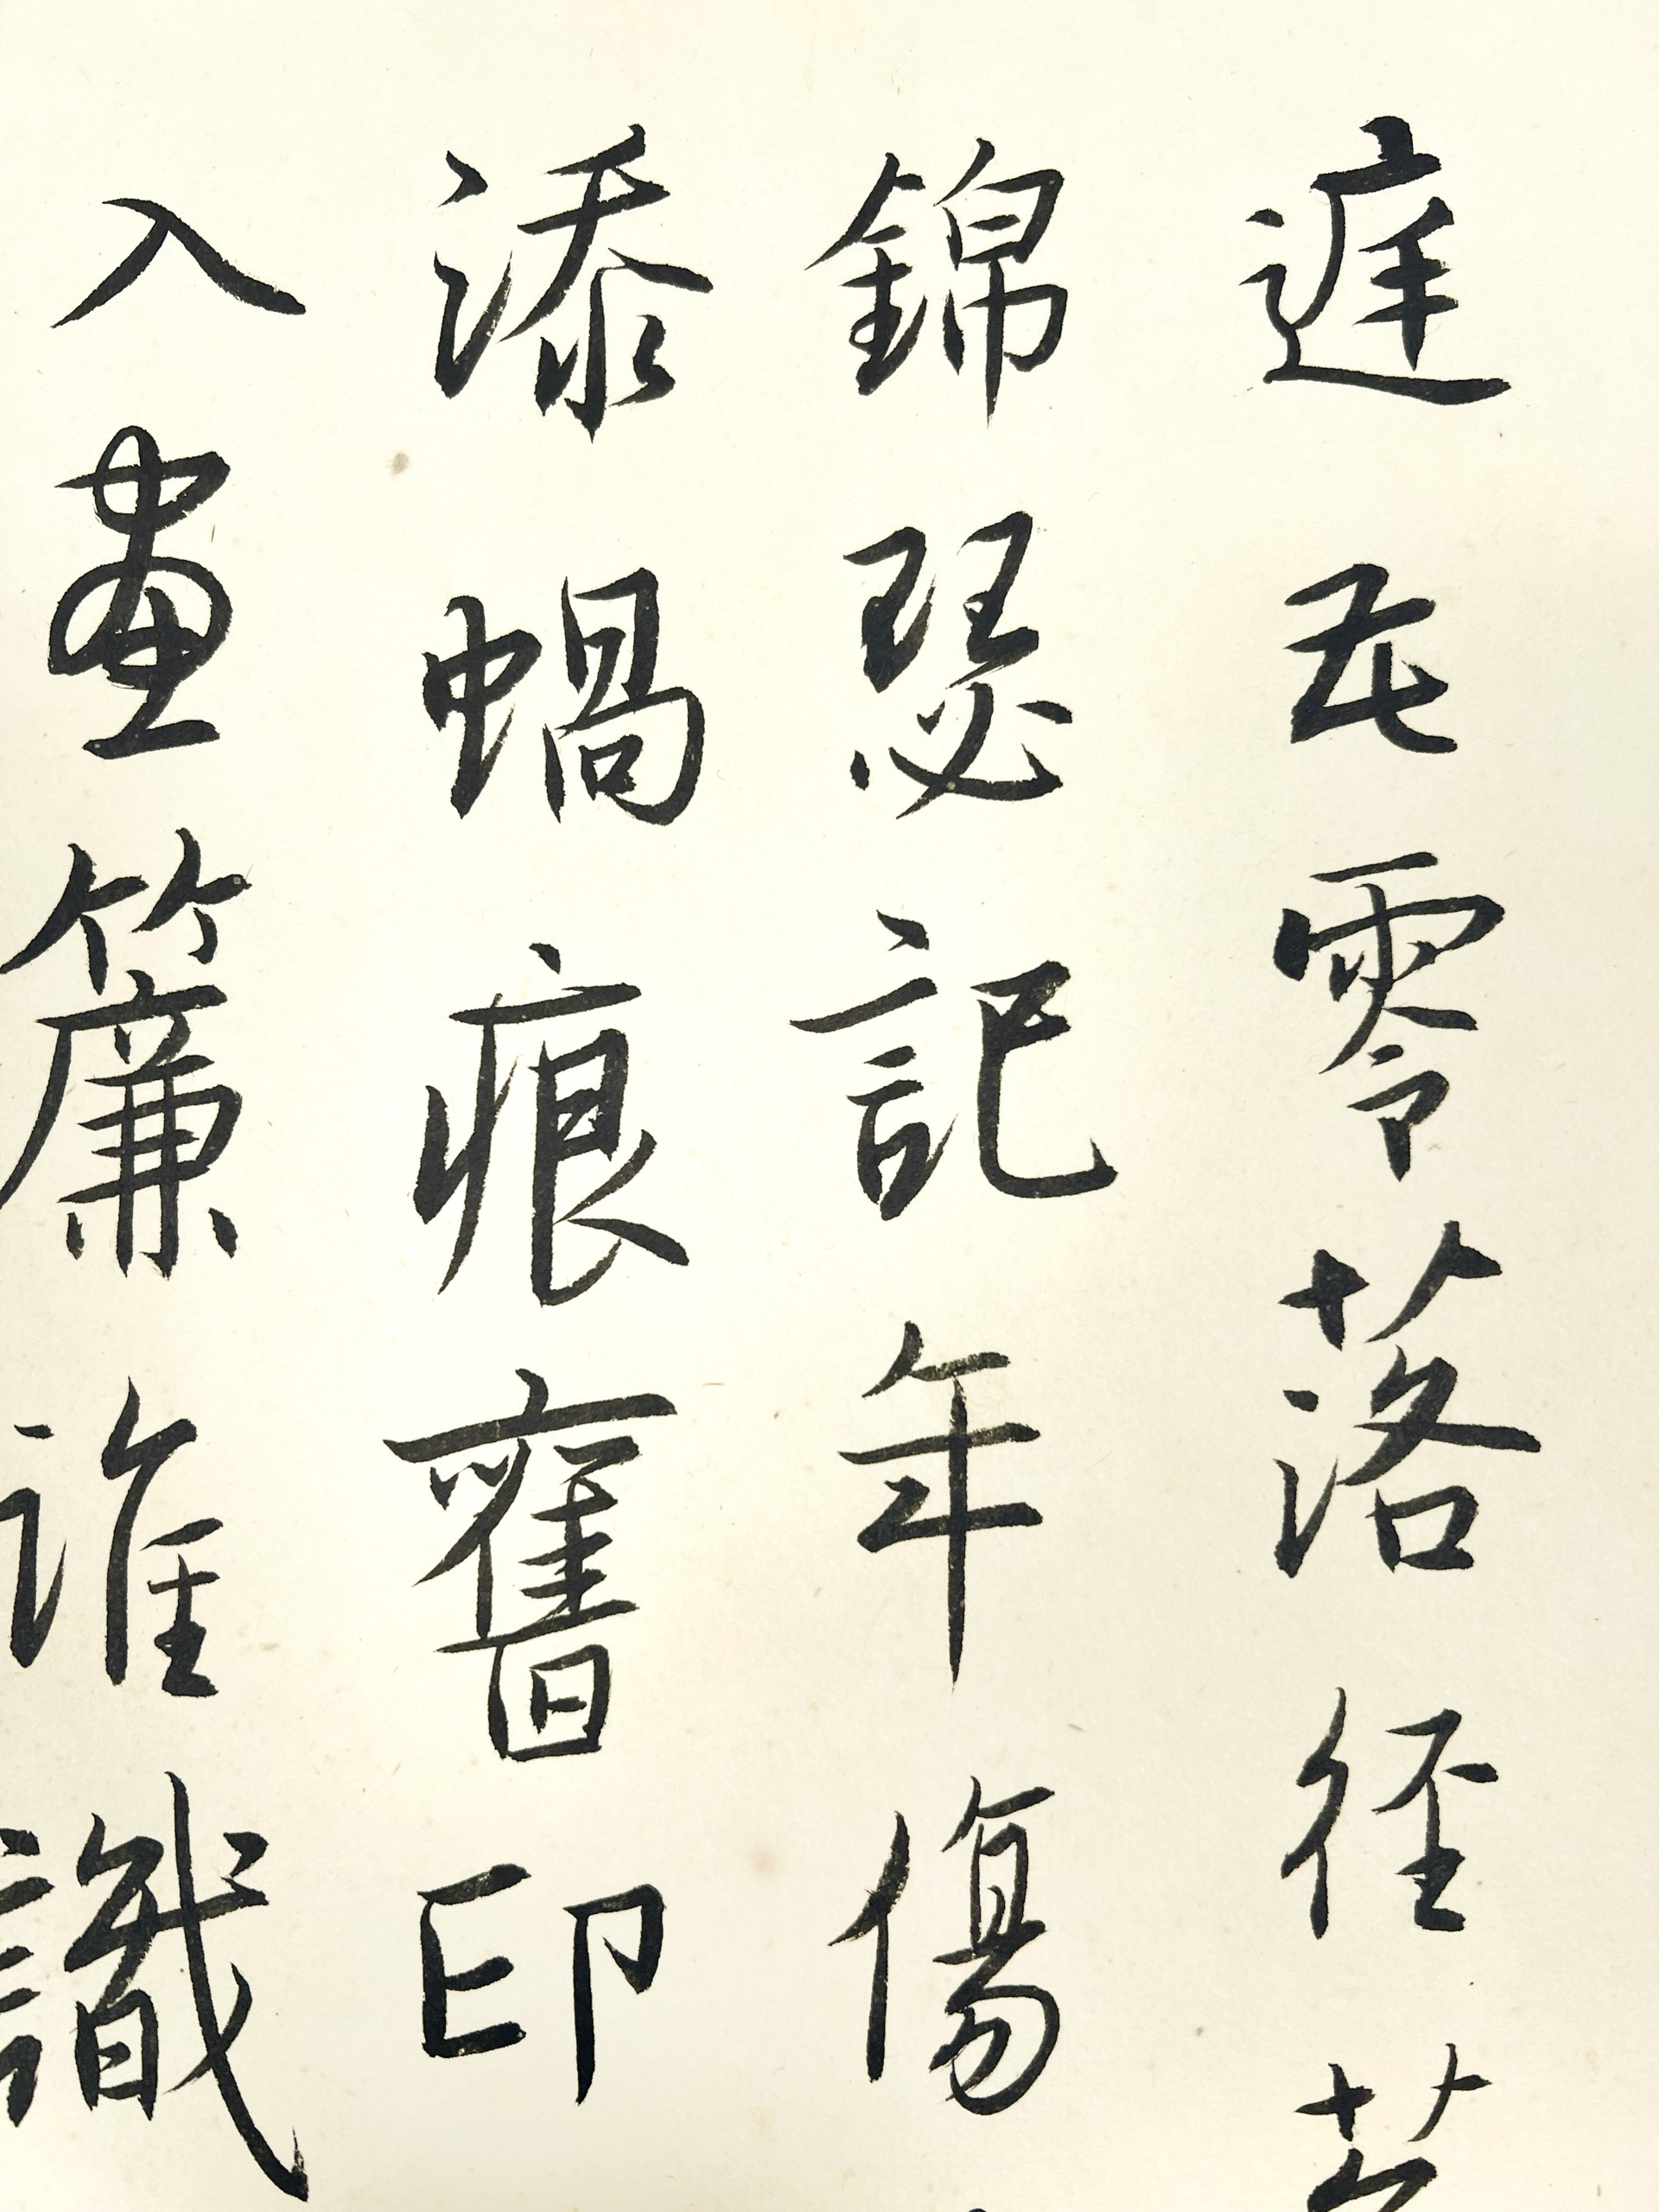 庭花零落徑
錦瑟記年傷
添蝸痕舊印
入畫簾誰識